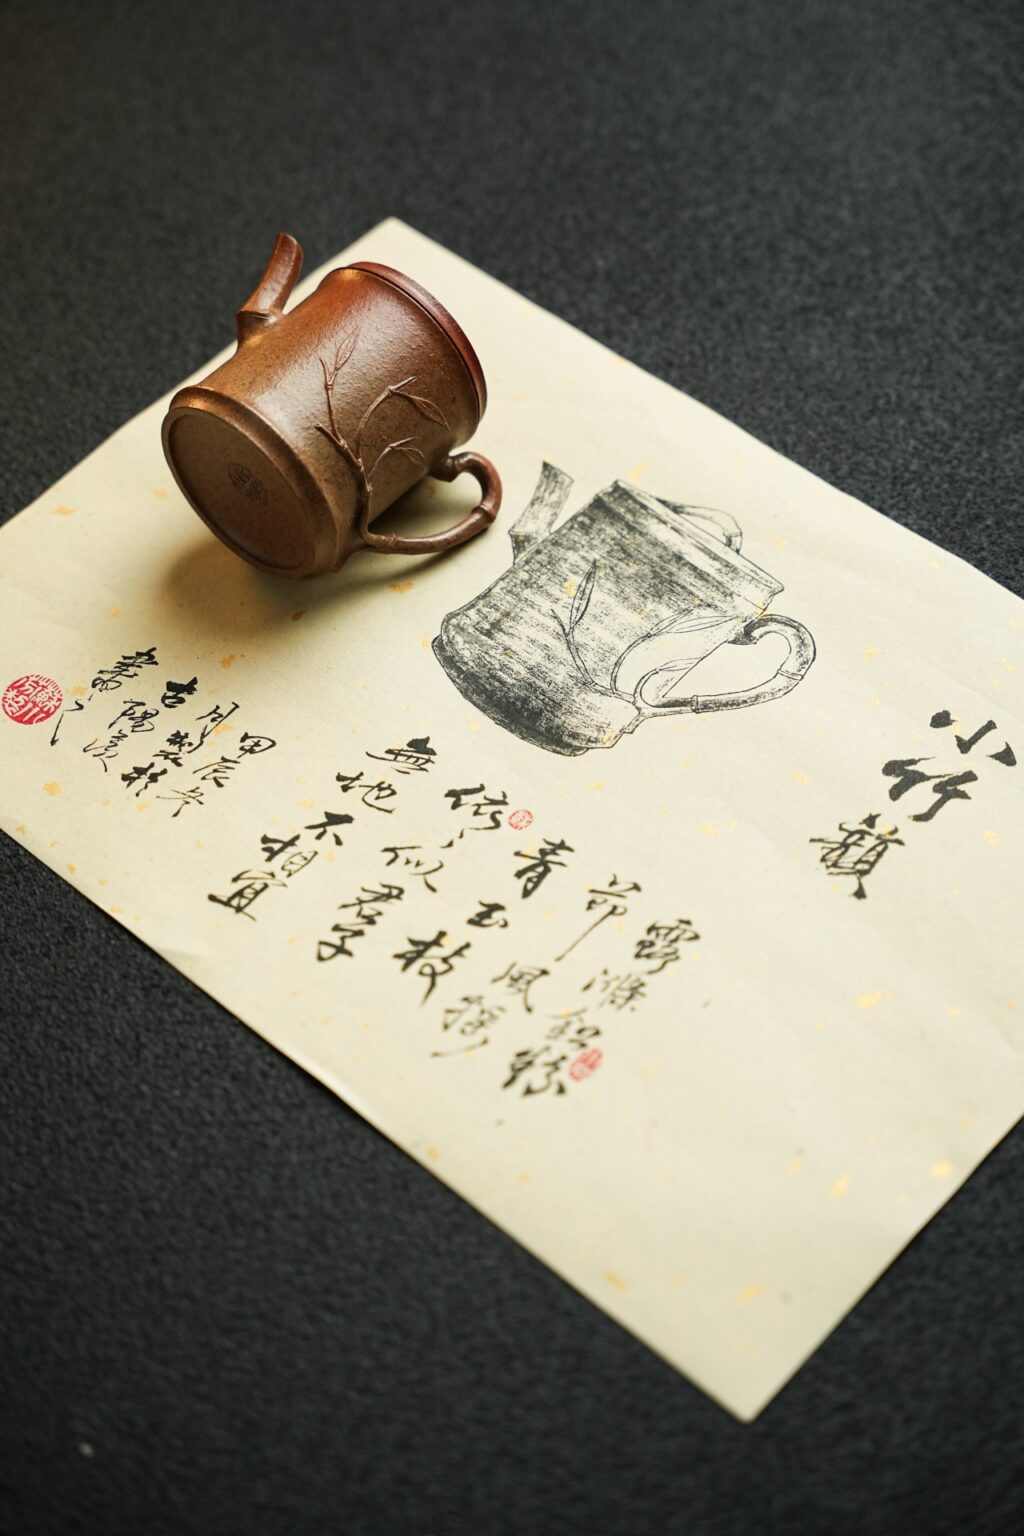 小竹籟
露滌鉛粉
節風搖
青玉枝
依々似君子
無地不相宜
甲辰冬
月製於
古陽羨